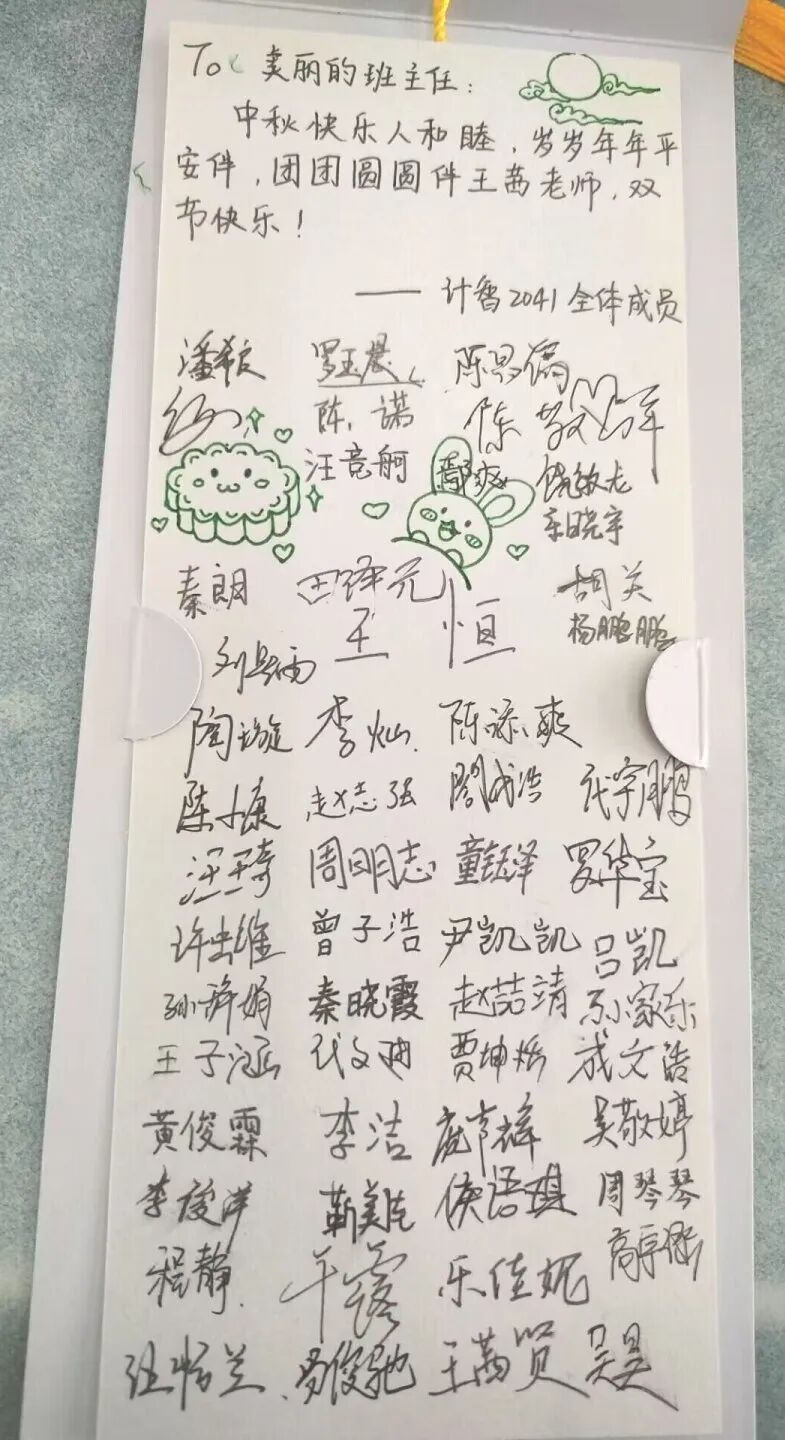 To 美丽的班主任：
中秋快乐人和睦，岁岁年年平
安伴，团团圆圆伴王茜老师，双
节快乐！
—— 计智2041全体成员
潘 罗玉晨 陈
陈诺 陈
汪竞舸 鄢爽 饶敏龙
晓宇
秦朗 田泽元 胡关
王恒 杨鹏鹏
刘
陶璇 李灿 陈添爽
陈小康 赵志强 阎成浩 代宇鹏
汪琦 周明志 童钰泽 罗华宝
许 曾子浩 尹凯凯 吕凯
孙 娟 秦晓霞 赵喆靖 孙家乐
王子涵 代文 贾坤 成文浩
黄俊霖 李洁 庞 吴敬婷
李俊洋 靳美佳 侯语琪 周琴琴
程静 露 乐佳妮 高
汪 兰 易俊驰 王茜贤 吴昊